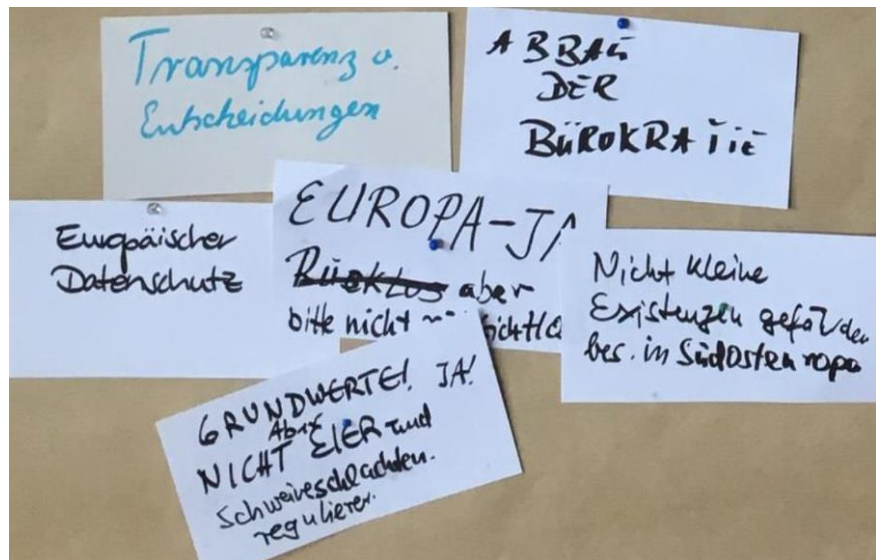 Transparenz v.
Entscheidungen
ABBAU
DER
BÜROKRATIE
Europäischer
Datenschutz
EUROPA-JA
aber
bitte nicht
Nicht kleine
Existenzen gefährden
bes. in Südosteuropa
GRUNDWERTE! JA!
Aber
NICHT EIER und
Schweineschlachten.
regulieren.